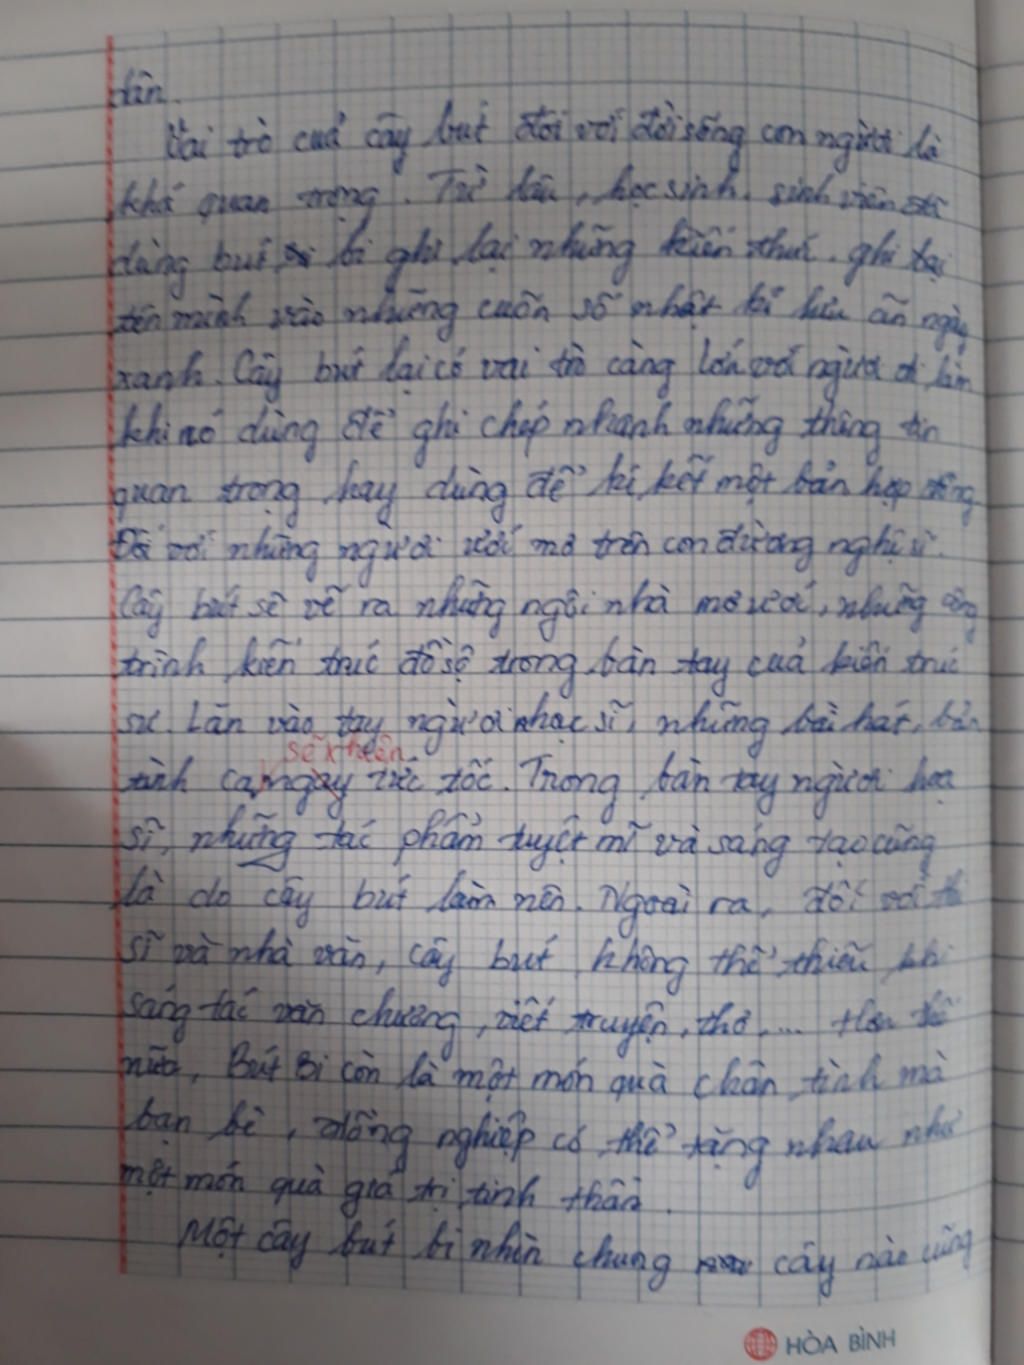 dân.
Vai trò cuả cây bút đối với đời sống con người là
khá quan trọng. Từ lâu, học sinh, sinh viên đã
dùng bút bi ghi lại những kiến thức, ghi lại
tên mình vào những cuốn sổ nhật kí lưu ấn ngày
xanh. Cây bút lại có vai trò càng lớn với người đi làm
khi nó dùng để ghi chép nhanh những thông tin
quan trọng hay dùng để kí kết một bản hợp đồng.
Đối với những người ước mơ trên con đường nghệ sĩ.
Cây bút sẽ vẽ ra những ngôi nhà mơ ước, những công
trình kiến trúc đồ sộ trong bàn tay cuả kiến trúc
sư. Lăn vào tay người nhạc sĩ, những bài hát, bản
sẽ hiện
tình ca ngay tức tốc. Trong bàn tay người hoạ
sĩ, những tác phẩm tuyệt mĩ và sáng tạo cũng
là do cây bút làm nên. Ngoài ra, đối với thi
sĩ và nhà văn, cây bút không thể thiếu khi
sáng tác văn chương, viết truyện, thơ,... Hơn thế
nữa, Bút Bi còn là một món quà chân tình mà
bạn bè, đồng nghiệp có thể tặng nhau như
một món quà giá trị tinh thần.
Một cây bút bi nhìn chung cây nào cũng
HÒA BÌNH